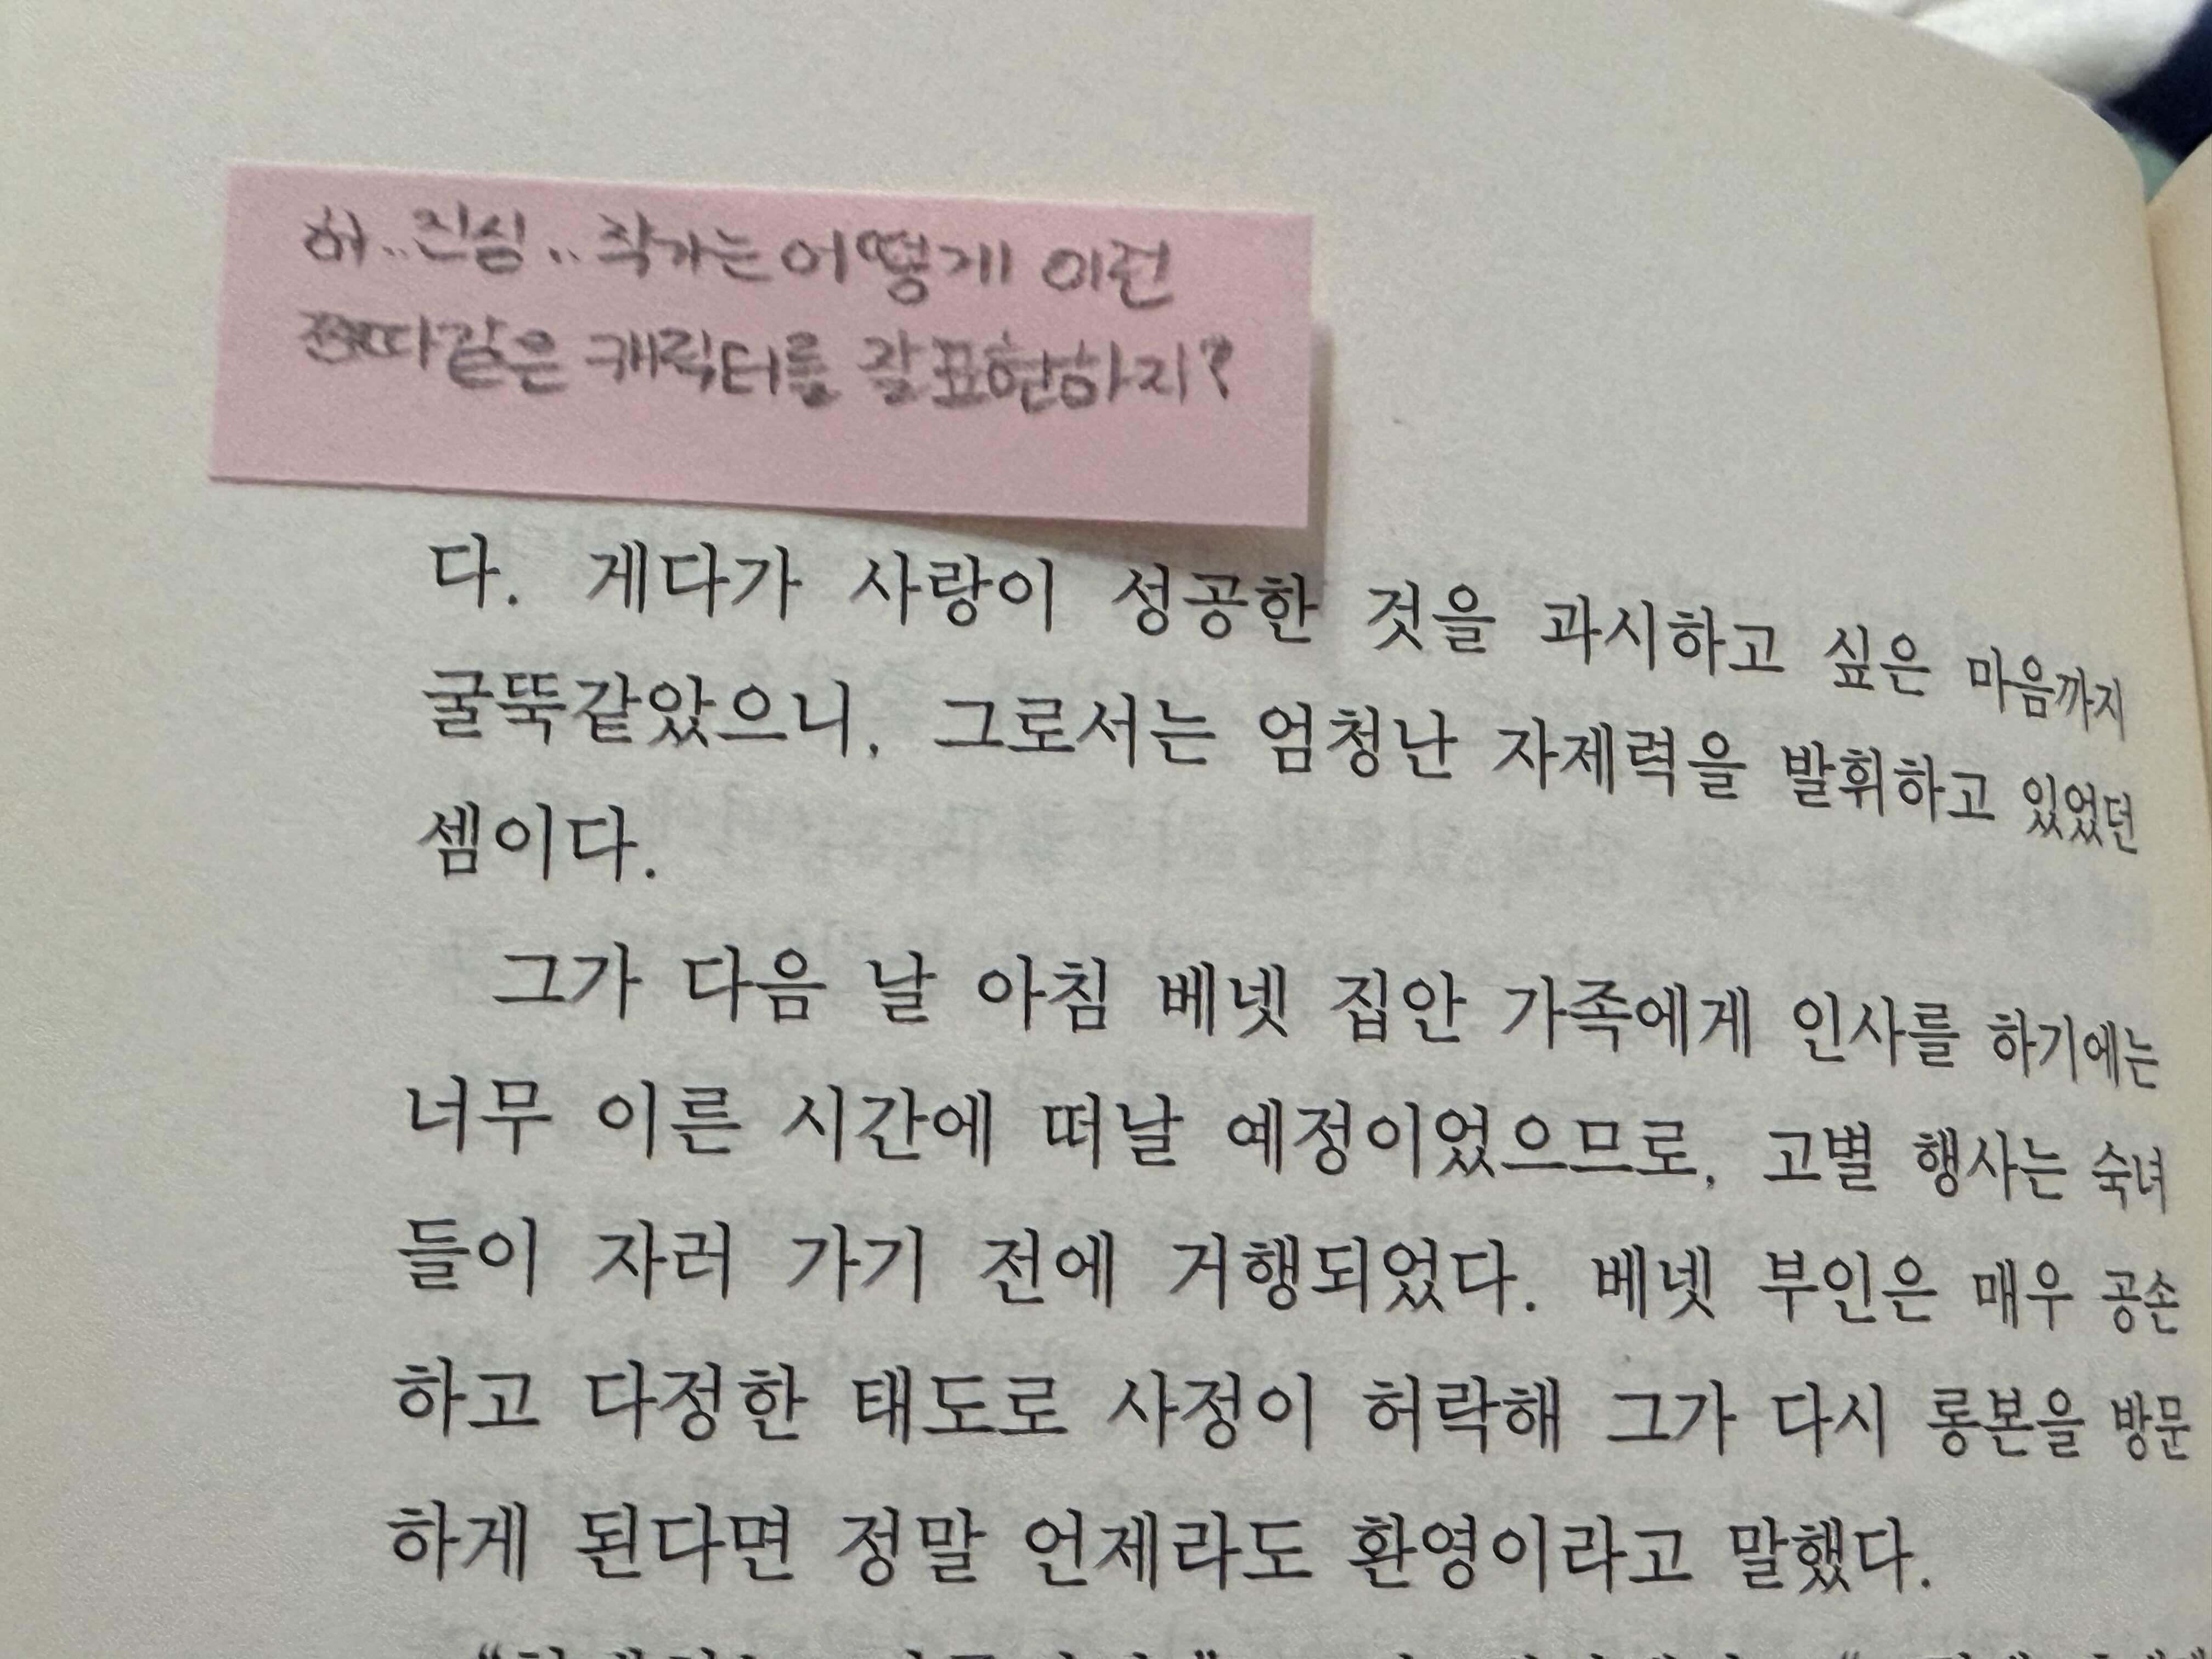 허..진심..작가는 어떻게 이런
찐따같은 캐릭터를 잘 표현하지?
다. 게다가 사랑이 성공한 것을 과시하고 싶은 마음까지
굴뚝같았으니, 그로서는 엄청난 자제력을 발휘하고 있었던
셈이다.
그가 다음 날 아침 베넷 집안 가족에게 인사를 하기에는
너무 이른 시간에 떠날 예정이었으므로, 고별 행사는 숙녀
들이 자러 가기 전에 거행되었다. 베넷 부인은 매우 공손
하고 다정한 태도로 사정이 허락해 그가 다시 롱본을 방문
하게 된다면 정말 언제라도 환영이라고 말했다.